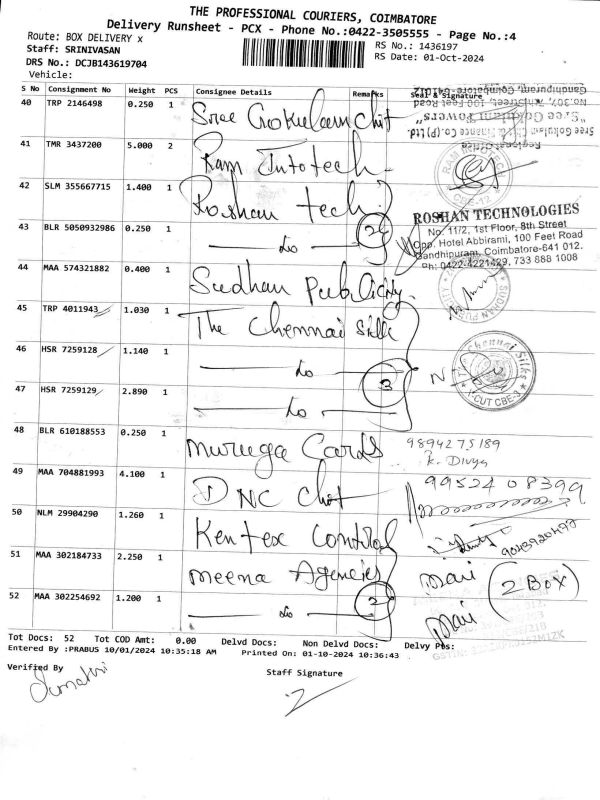 THE PROFESSIONAL COURIERS, COIMBATORE
Delivery Runsheet - PCX - Phone No.:0422-3505555 - Page No.:4
Route: BOX DELIVERY x
RS No.: 1436197
Staff: SRINIVASAN
RS Date: 01-Oct-2024
DRS No.: DCJB143619704
Vehicle:
S No Consignment No Weight PCS Consignee Details Remarks Seal & Signature
40 TRP 2146498 0.250 1 Sree Gokulam chit
"Sree Gokulam Towers"
Gandhipuram, Coimbatore-641012
41 TMR 3437200 5.000 2 Ram Infotech
42 SLM 355667715 1.400 1 Roshan tech
ROSHAN TECHNOLOGIES
No. 11/2, 1st Floor, 8th Street
Opp. Hotel Abbirami, 100 Feet Road
Gandhipuram, Coimbatore-641 012.
Ph: 0422-4221429, 733 888 1008
43 BLR 5050932986 0.250 1 Do 2
44 MAA 574321882 0.400 1 Sudhan Publicity
45 TRP 4011943 1.030 1 The Chennai silk
46 HSR 7259128 1.140 1 Do 3
The Chennai Silks
CUT CBE-3
47 HSR 7259129 2.890 1 Do
48 BLR 610188553 0.250 1 Muruga Cards 9894275189
K. Divya
49 MAA 704881993 4.100 1 DNC Chit 99524 08399
50 NLM 29904290 1.260 1 Kentex Control
51 MAA 302184733 2.250 1 Meena Agencies Mari (2 Box)
52 MAA 302254692 1.200 1 Do 2 Mari
Tot Docs: 52 Tot COD Amt: 0.00 Delvd Docs: Non Delvd Docs: Delvy Pts:
Entered By :PRABUS 10/01/2024 10:35:18 AM Printed On: 01-10-2024 10:36:43
Verified By
Staff Signature